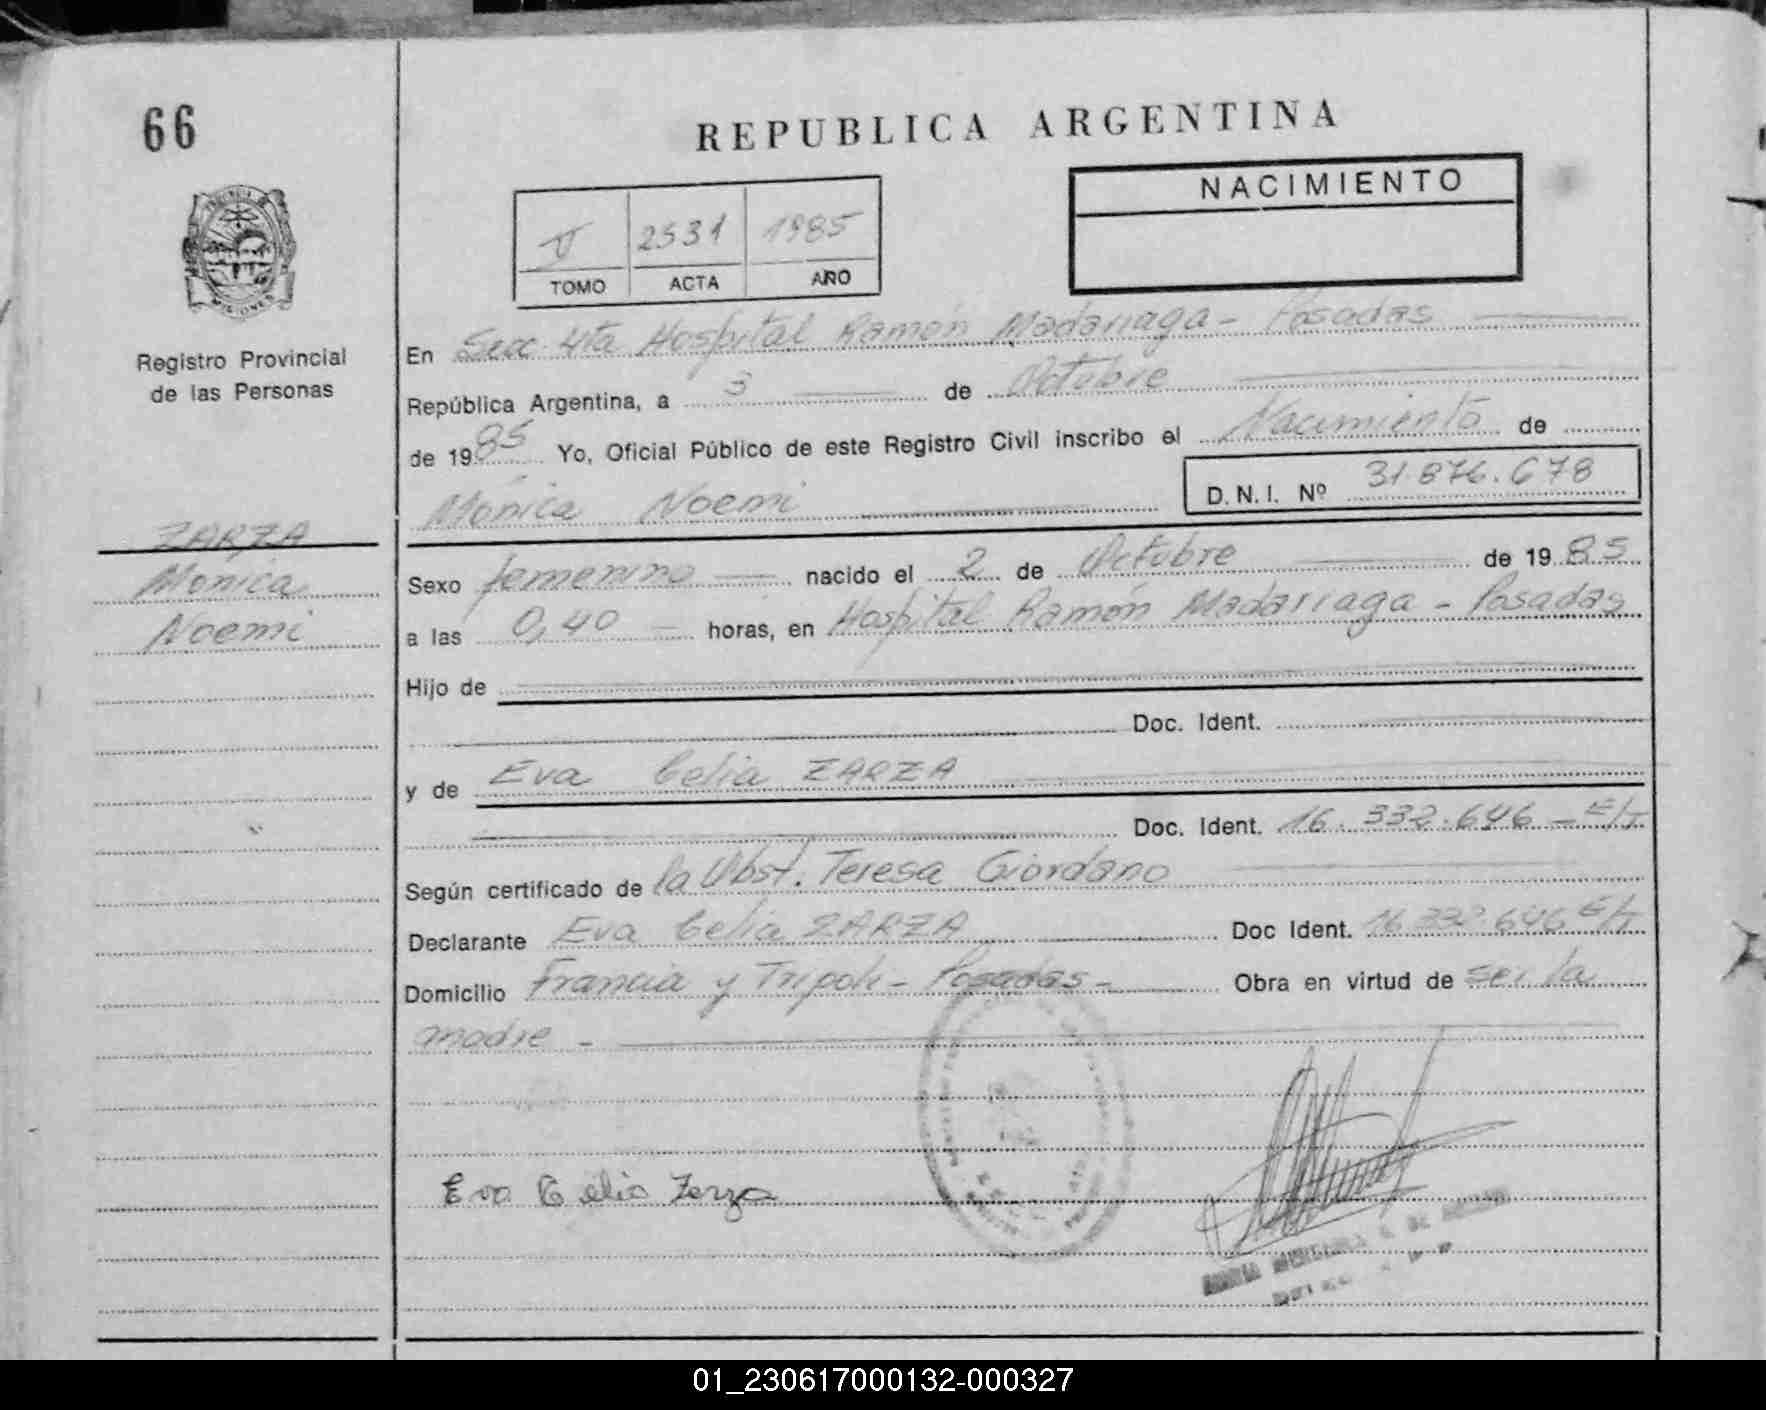 66
REPUBLICA ARGENTINA
NACIMIENTO
2531 1985
TOMO ACTA AÑO
Registro Provincial
de las Personas
En Secc 4ta Hospital Ramón Madariaga - Posadas
República Argentina, a 3 de Octubre
de 1985 Yo, Oficial Público de este Registro Civil inscribo el Nacimiento de
D.N.I. Nº 31.876.678
Mónica Noemi
ZARZA
Monica
Noemi
Sexo femenino nacido el 2 de Octubre de 1985
a las 0,40 horas, en Hospital Ramón Madariaga - Posadas
Hijo de
Doc. Ident.
y de Eva Celia ZARZA
Doc. Ident. 16.332.646 - E/T
Según certificado de la Obst. Teresa Giordano
Declarante Eva Celia ZARZA Doc Ident. 16.332.646 E/T
Domicilio Francia y Tripoli - Posadas - Obra en virtud de ser la
madre -
Eva Celia Zarza
01_230617000132-000327